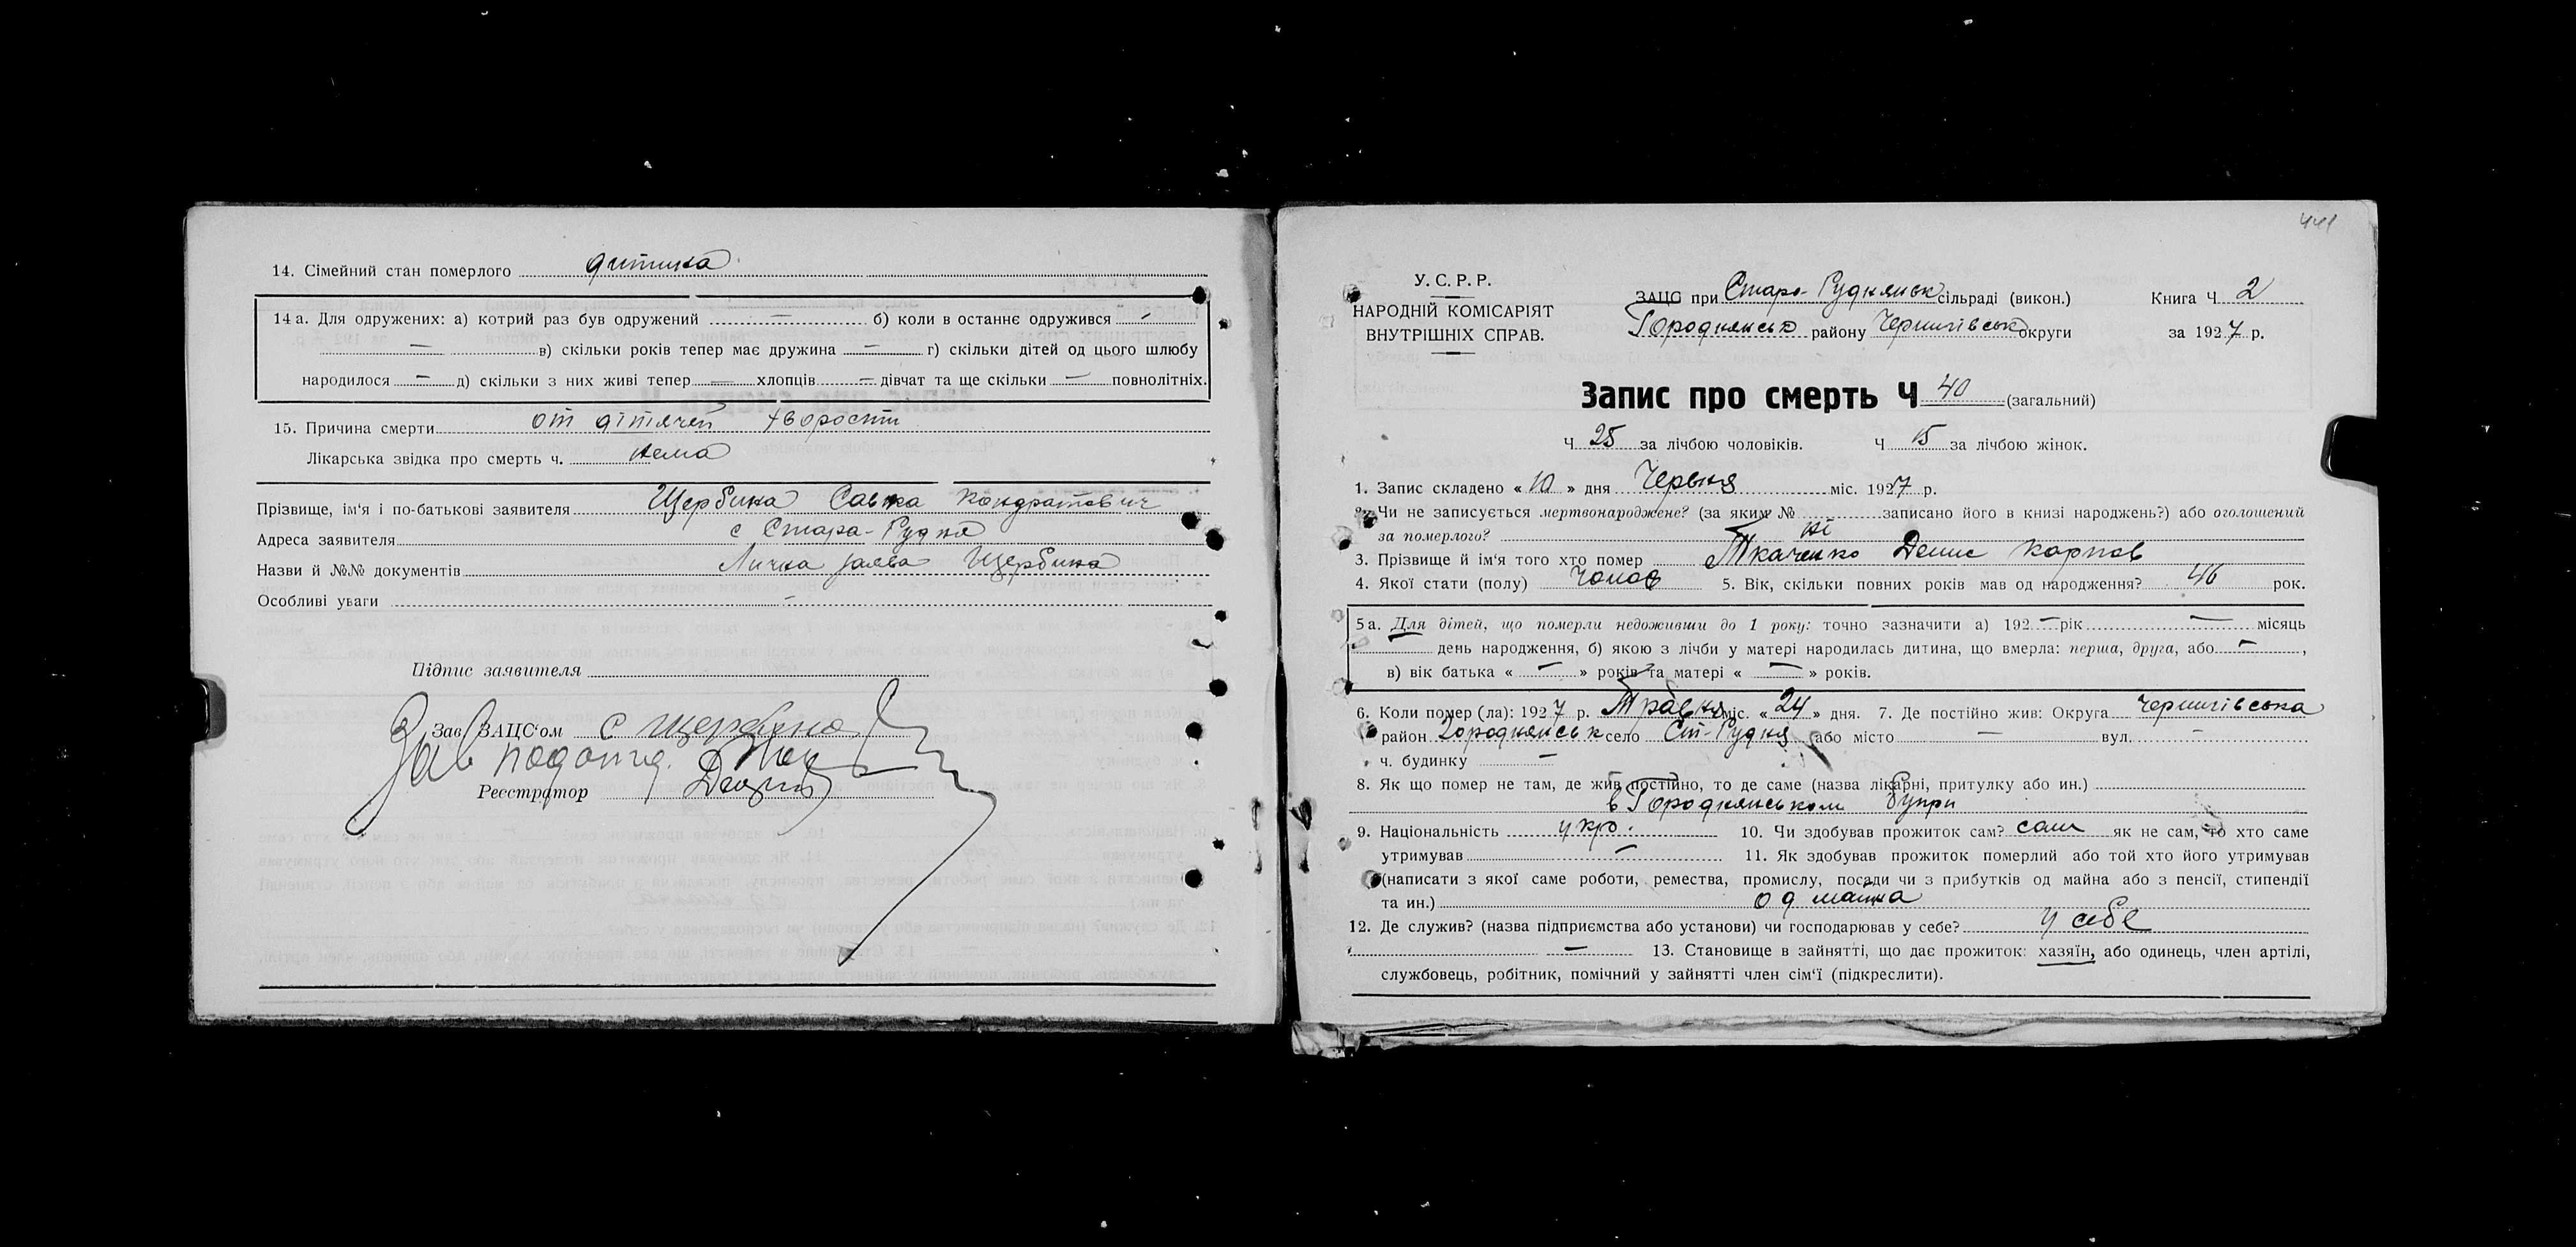 14. Сімейний стан померлого дитина
14 а. Для одружених: а) котрий раз був одружений — б) коли в останнє одружився —
— в) скільки років тепер має дружина — г) скільки дітей од цього шлюбу
народилося — д) скільки з них живі тепер — хлопців — дівчат та ще скільки — повнолітніх.
15. Причина смерти от дітячей хворости
Лікарська звідка про смерть ч. нема
Прізвище, ім'я і по-батькові заявителя Щербина Савка Кондратович
Адреса заявителя с Стара-Рудня
Назви й №№ документів Лична заява Щербина
Особливі уваги —
Підпис заявителя
Зав. ЗАЦС'ом С Щербина
Зав
Реєстратор
441
У. С. Р. Р.
НАРОДНІЙ КОМІСАРІЯТ
ВНУТРІШНІХ СПРАВ.
ЗАЦС при Старо-Руднянськ сільраді (викон.)
Городнянськ району Чернигівськ округи
Книга Ч 2
за 1927 р.
Запис про смерть Ч 40 (загальний)
Ч 25 за лічбою чоловіків. Ч 15 за лічбою жінок.
1. Запис складено « 10 » дня Червня міс. 1927 р.
2. Чи не записується мертвонароджене? (за яким № записано його в книзі народжень?) або оголошений
за померлого? ні
3. Прізвище й ім'я того хто помер Ткаченко Денис Карпов
4. Якої стати (полу) Чолов 5. Вік, скільки повних років мав од народження? 46 рок.
5 а. Для дітей, що померли недоживши до 1 року: точно зазначити а) 192 — рік — місяць
день народження, б) якою з лічби у матері народилась дитина, що вмерла: перша, друга, або — ,
в) вік батька « — » років та матері « — » років.
6. Коли помер (ла): 1927 р. Травня міс. « 24 » дня. 7. Де постійно жив: Округа Чернигівська
район Городнянськ село Ст-Рудня або місто — вул. —
ч. будинку —
8. Як що помер не там, де жив постійно, то де саме (назва лікарні, притулку або ин.)
в Городнянськом Бупри
9. Національність укр. 10. Чи здобував прожиток сам? сам як не сам, то хто саме
утримував — 11. Як здобував прожиток померлий або той хто його утримував
(написати з якої саме роботи, ремества, промислу, посади чи з прибутків од майна або з пенсії, стипендії
та ин.) од майна
12. Де служив? (назва підприємства або установи) чи господарював у себе? у себе
— 13. Становище в зайнятті, що дає прожиток: хазяїн, або одинець, член артілі,
службовець, робітник, помічний у зайнятті член сім'ї (підкреслити).